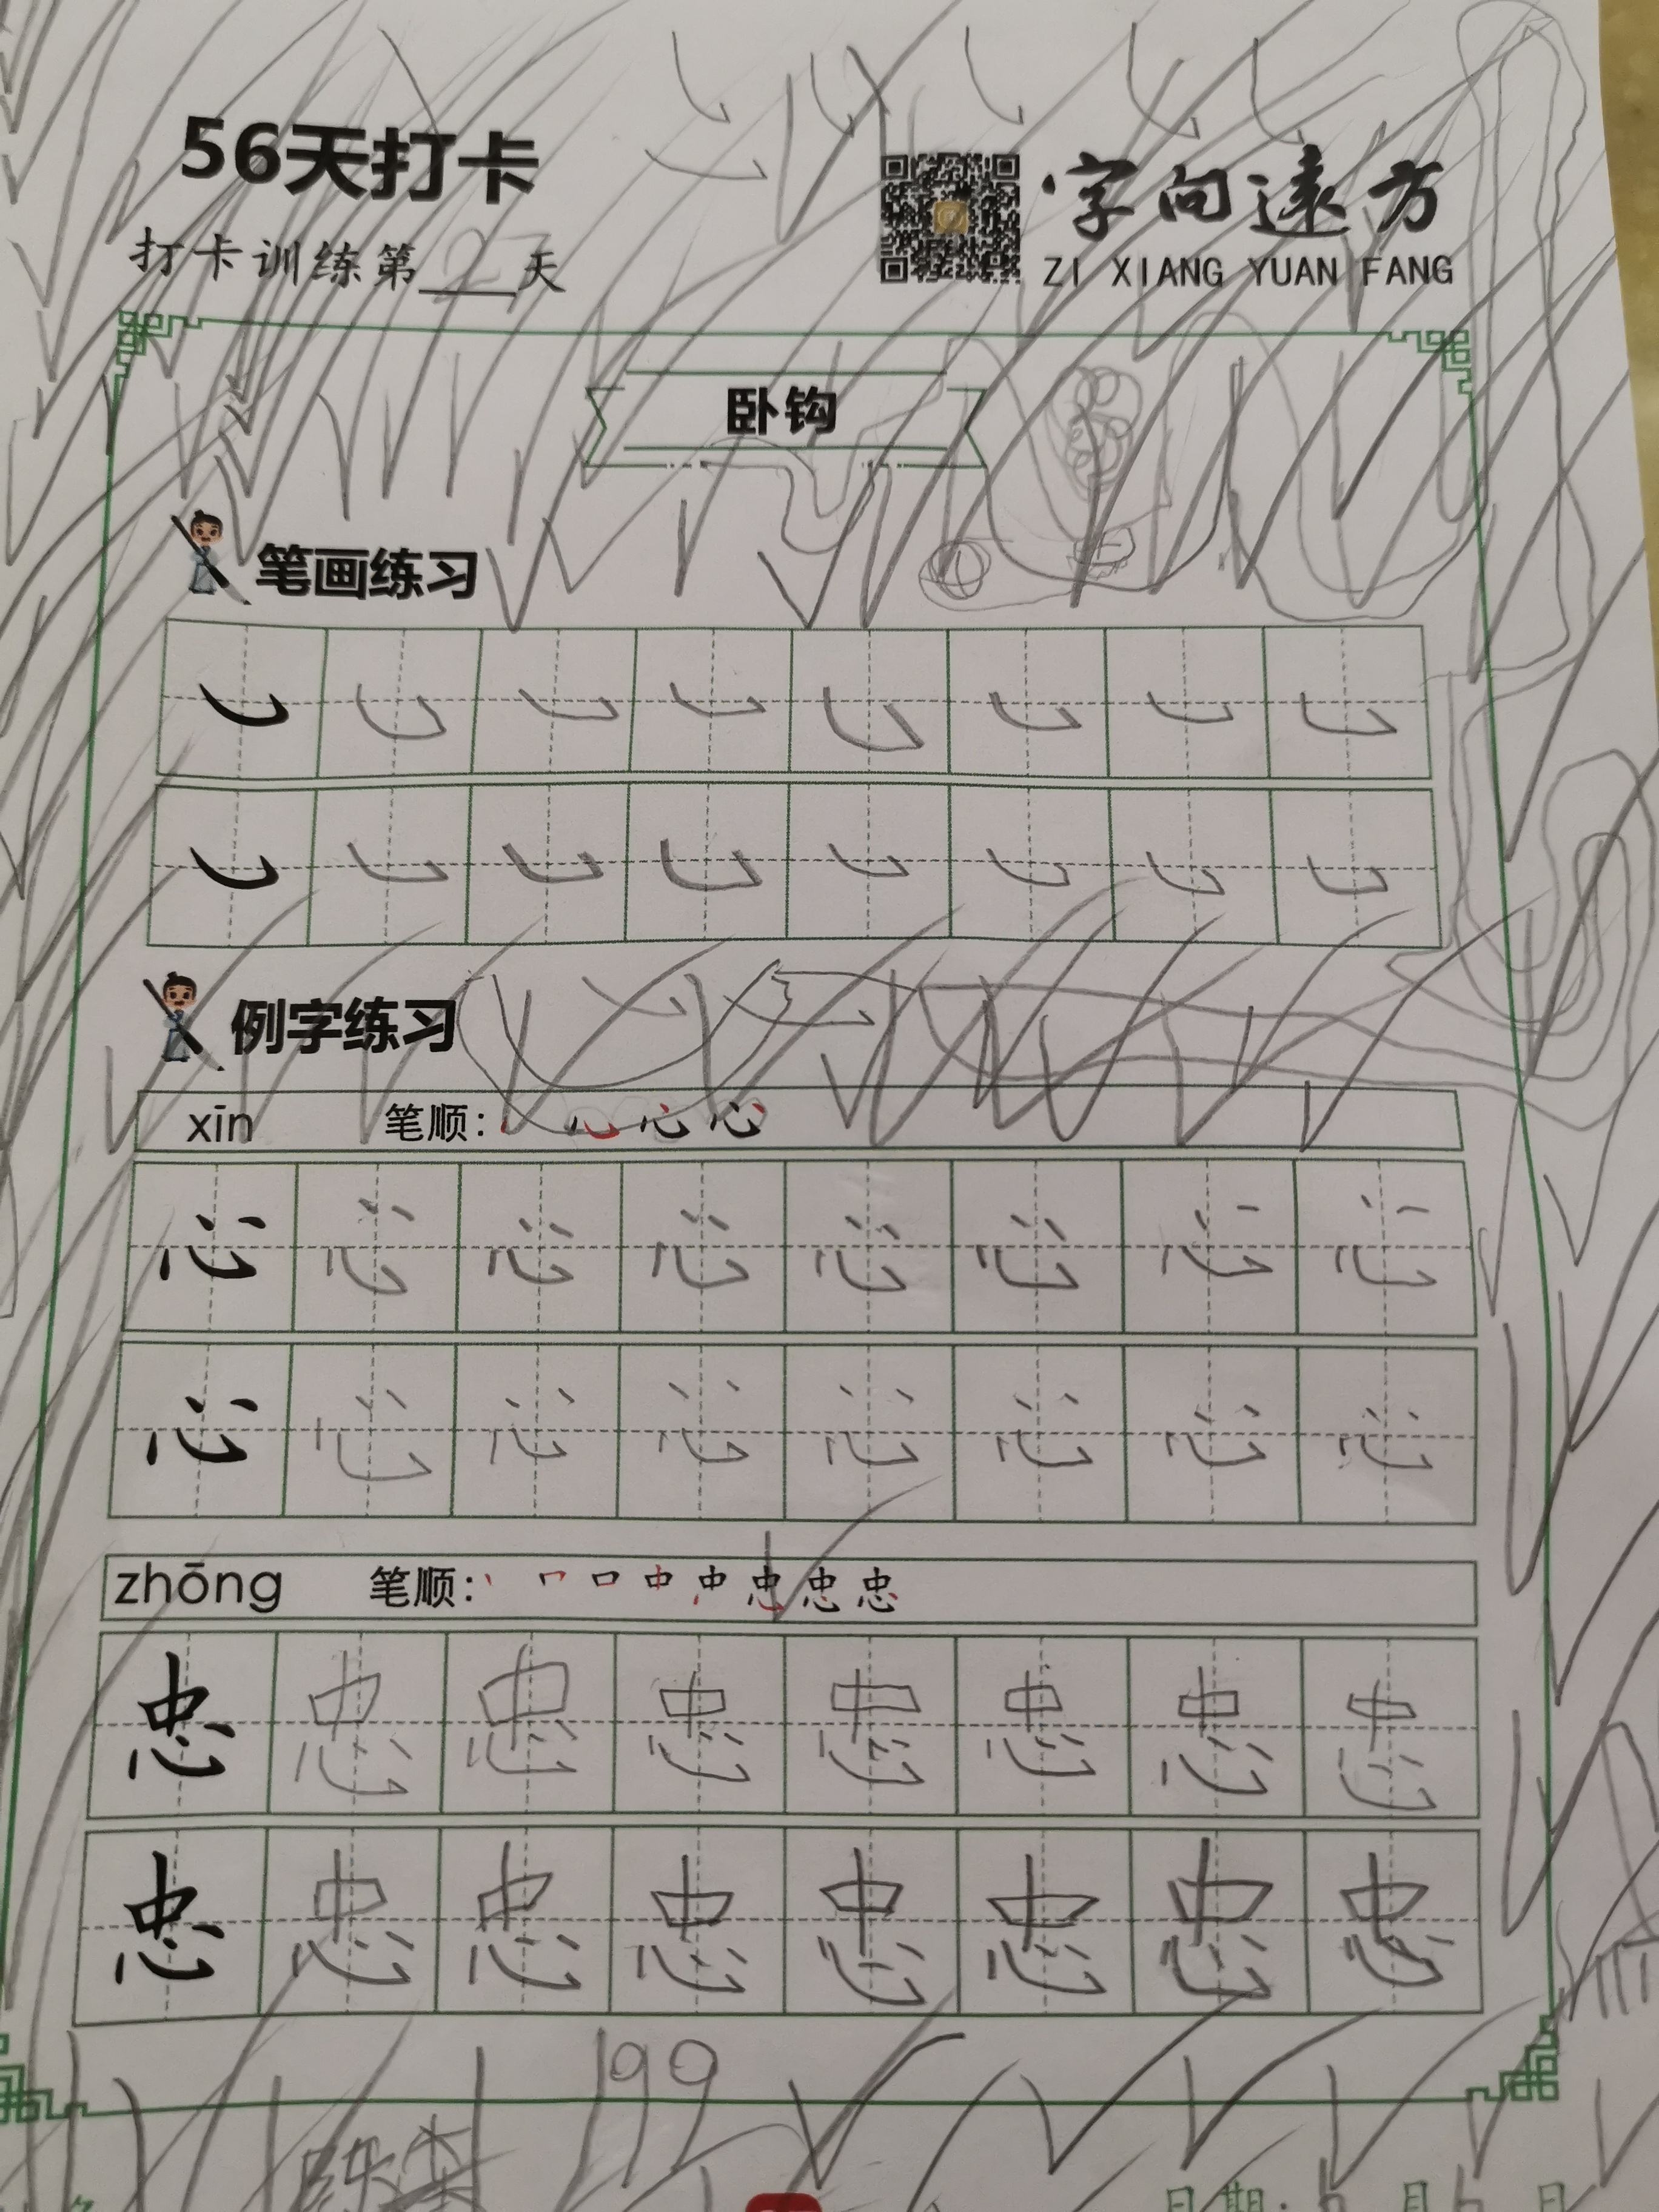 56天打卡
打卡训练第27天
字向遠方
ZI XIANG YUAN FANG
卧钩
笔画练习
例字练习
xīn 笔顺： 心 心 心
心 心 心 心 心 心 心 心
心 心 心 心 心 心 心 心
zhōng 笔顺： 丶 冖 口 中 中 忠 忠 忠
忠 忠 忠 忠 忠 忠 忠 忠
忠 忠 忠 忠 忠 忠 忠 忠
199
日期： 月 日